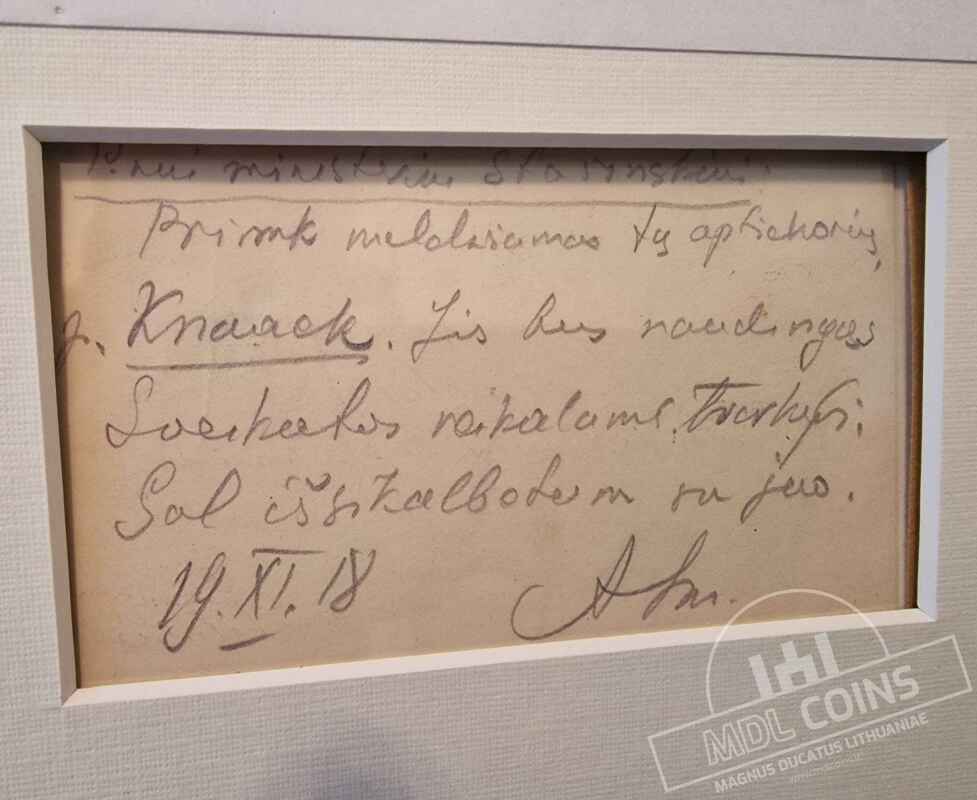 ministeriui Stašinskiui.
Priimk meldžiamas tą aptiekorių,
p. Knaack. Jis bus naudingas
Sveikatos reikalams tvarkyti.
Gal išsikalbotum su juo.
19.XI.18 A Sm.
MDL COINS
MAGNUS DUCATUS LITHUANIAE